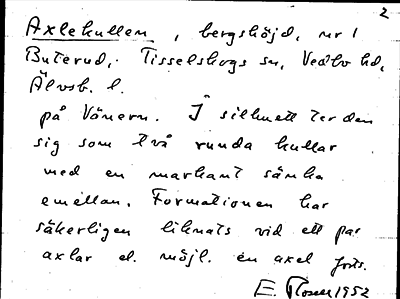 2
Axlekullen, bergshöjd, nr 1
Buterud, Tisselskogs sn, Vedbo hd,
Älvsb. l.
på Vänern. I silhuett ter den
sig som två runda kullar
med en markant sänka
emellan. Formationen har
säkerligen liknats vid ett par
axlar el. möjl. en axel forts.
E. 1952